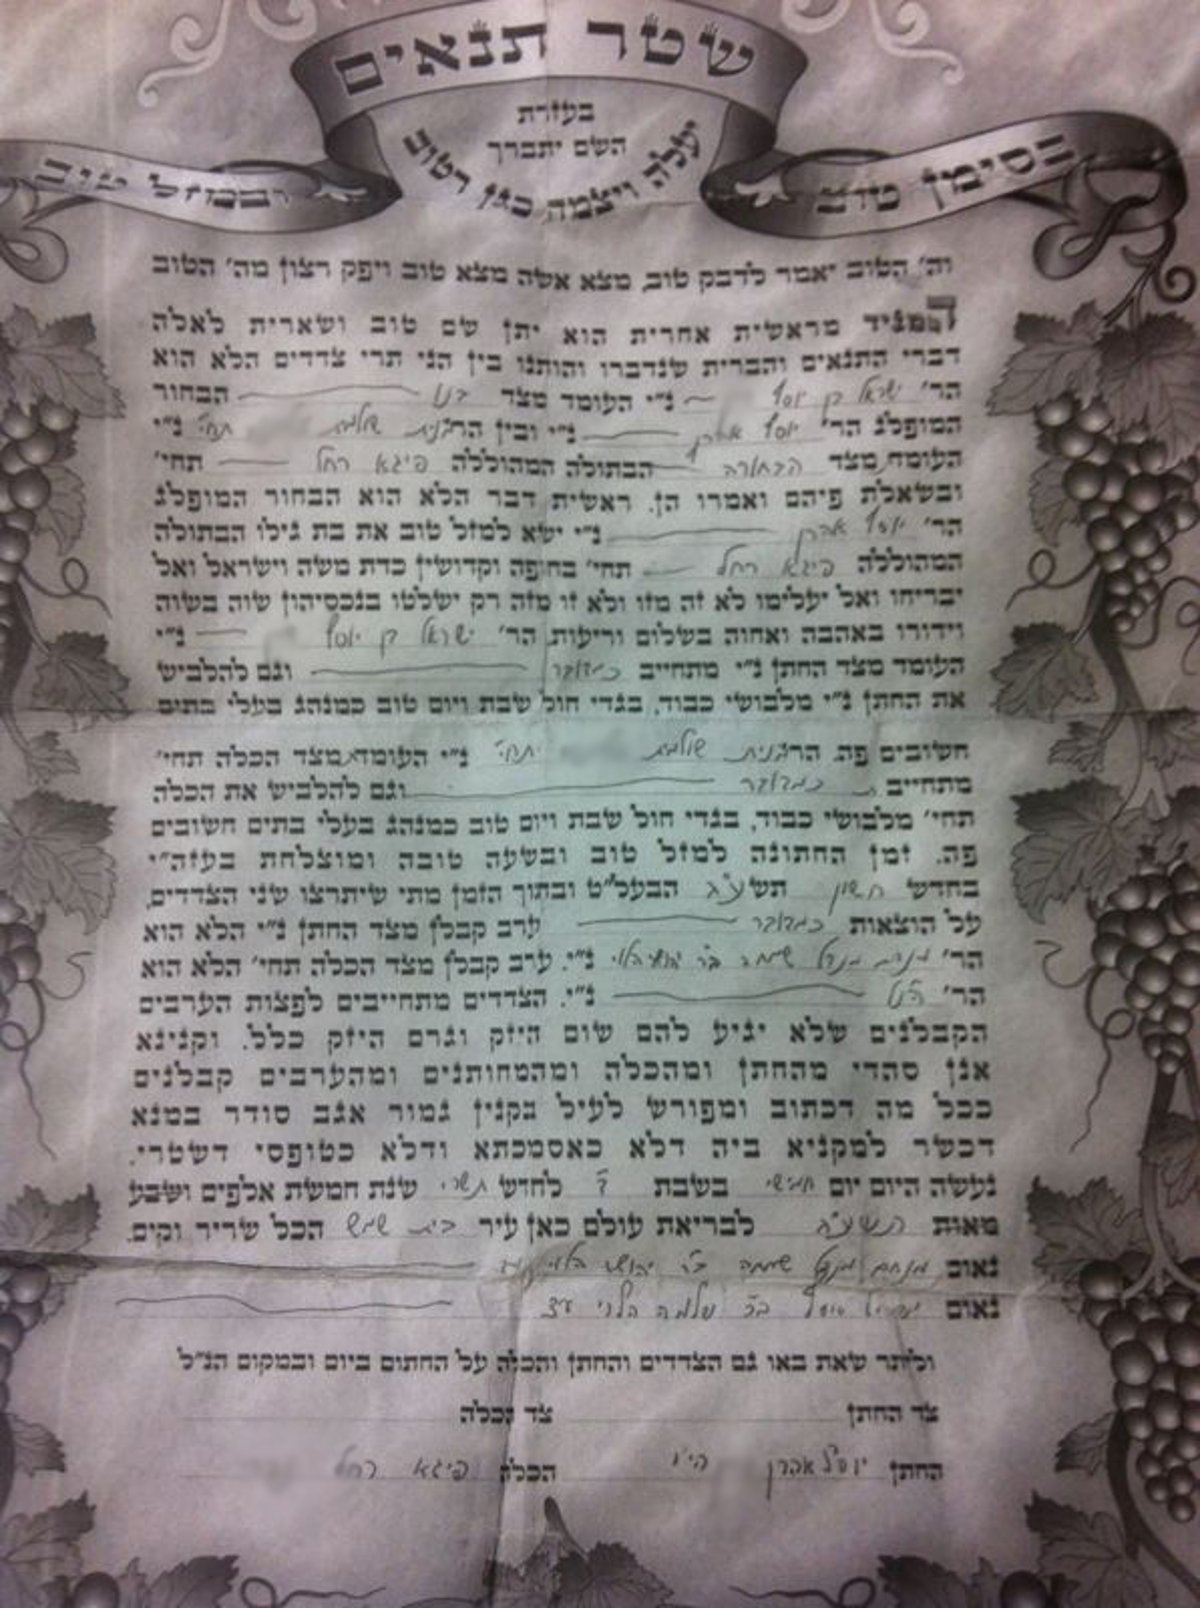 שטר תנאים
בעזרת
השם יתברך
יעלה ויצמח כגן רטוב
בסימן טוב
ובמזל טוב
וה׳ הטוב יאמר לדבק טוב, מצא אשה מצא טוב ויפק רצון מה׳ הטוב
המגיד מראשית אחרית הוא יתן שם טוב ושארית לאלה
דברי התנאים והברית שנדברו והותנו בין הני תרי צדדים הלא הוא
הר׳ ישראל בן יוסף נ״י העומד מצד בנו הבחור
המופלג הר׳ יוסף אהרן נ״י ובין הרבנית שולמית תחי׳ נ״י
העומד מצד הבחורה הבתולה המהוללה פיגא רחל תחי׳
ובשאלת פיהם ואמרו הן. ראשית דבר הלא הוא הבחור המופלג
הר׳ יוסף אהרן נ״י ישא למזל טוב את בת גילו הבתולה
המהוללה פיגא רחל תחי׳ בחופה וקדושין כדת משה וישראל ואל
יבריחו ואל יעלימו לא זה מזו ולא זו מזה רק ישלטו בנכסיהון שוה בשוה
וידורו באהבה ואחוה בשלום וריעות. הר׳ ישראל בן יוסף נ״י
העומד מצד החתן נ״י מתחייב כמדובר וגם להלביש
את החתן נ״י מלבושי כבוד, בגדי חול שבת ויום טוב כמנהג בעלי בתים
חשובים פה. הרבנית שולמית תחי׳ נ״י העומד מצד הכלה תחי׳
מתחייב ת כמדובר וגם להלביש את הכלה
תחי׳ מלבושי כבוד, בגדי חול שבת ויום טוב כמנהג בעלי בתים חשובים
פה. זמן החתונה למזל טוב ובשעה טובה ומוצלחת בעזה״י
בחדש חשון תשע״ה הבעל״ט ובתוך הזמן מתי שיתרצו שני הצדדים,
על הוצאות כמדובר ערב קבלן מצד החתן נ״י הלא הוא
הר׳ מנחם מנדל שמחה בר׳ יהושע הלוי נ״י. ערב קבלן מצד הכלה תחי׳ הלא הוא
הר׳ הנ״ל נ״י. הצדדים מתחייבים לפצות הערבים
הקבלנים שלא יגיע להם שום היזק וגרם היזק כלל. וקנינא
אנן סהדי מהחתן ומהכלה ומהמחותנים ומהערבים קבלנים
ככל מה דכתוב ומפורש לעיל בקנין גמור אגב סודר במנא
דכשר למקניא ביה דלא כאסמכתא ודלא כטופסי דשטרי.
נעשה היום יום חמישי בשבת ח׳ לחדש תשרי שנת חמשת אלפים ושבע
מאות התשע״ה לבריאת עולם כאן עיר בית שמש הכל שריר וקים.
נאום מנחם מנדל שמחה בר׳ יהושע הלוי
נאום בר׳ שלמה הלוי
וליתר שאת באו גם הצדדים והחתן והכלה על החתום ביום ובמקום הנ״ל
צד החתן צד הכלה
החתן יוסף אהרן הי״ו הכלה פיגא רחל